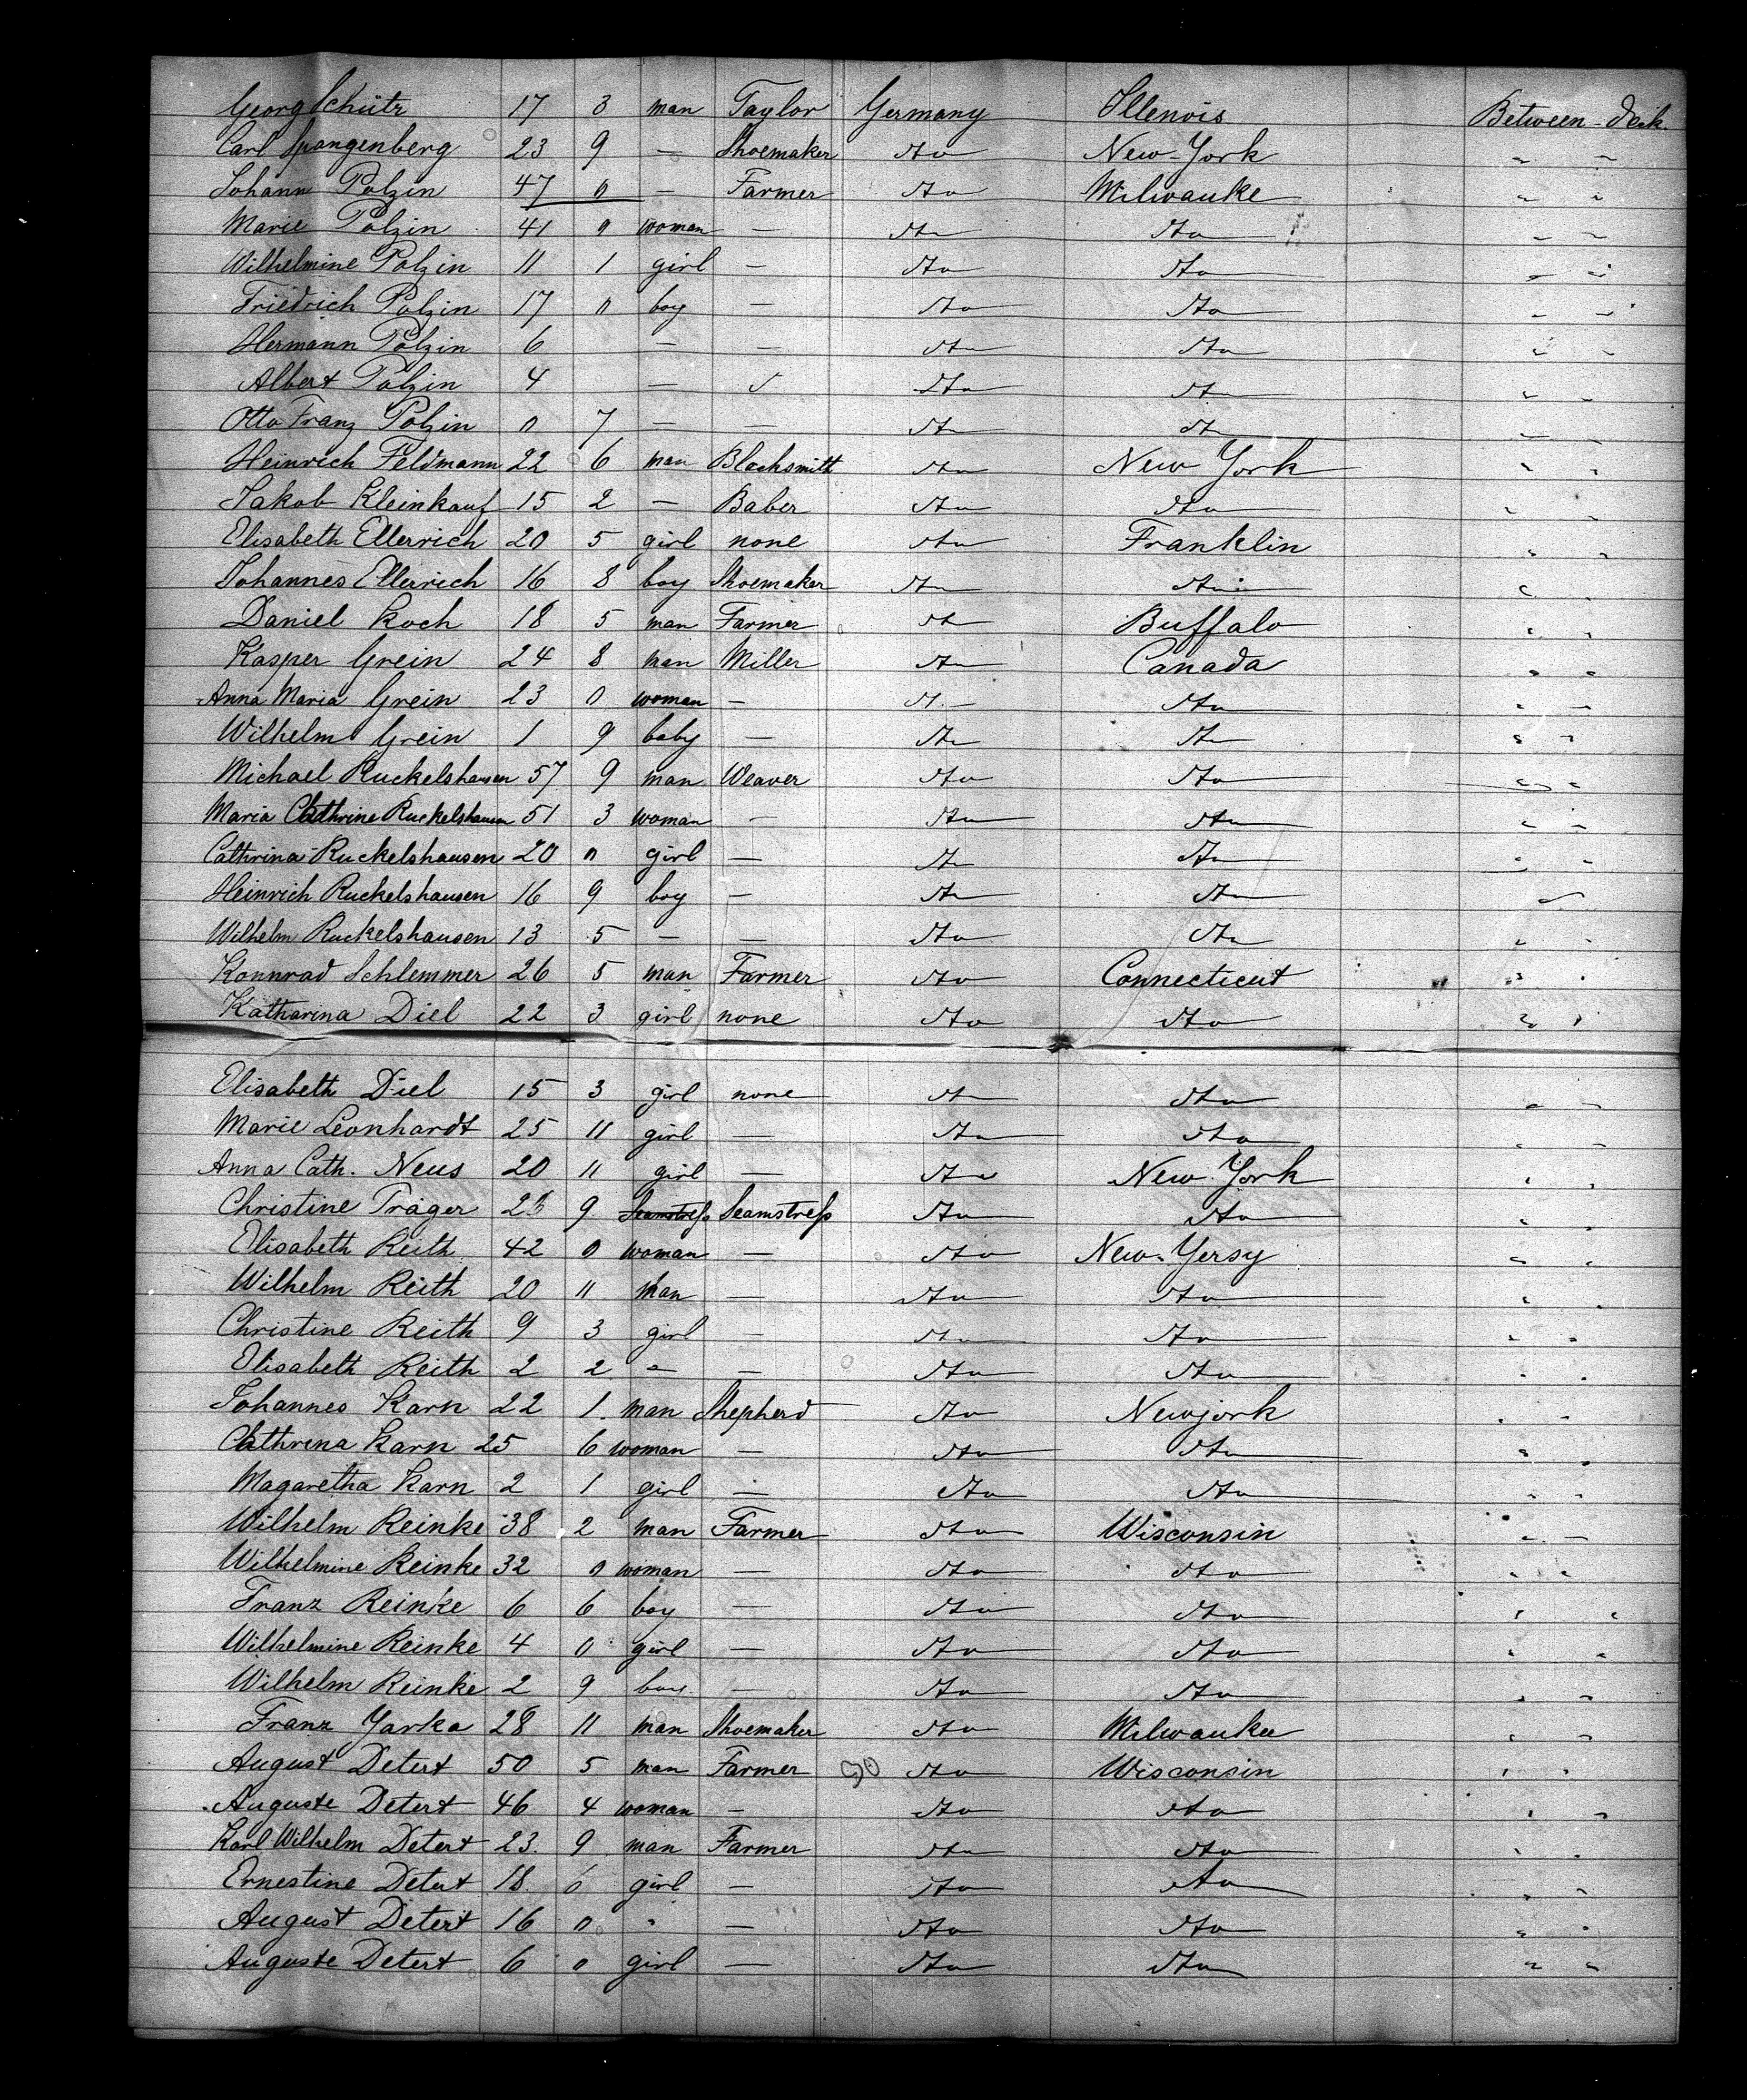 Georg Schütz 17 3 man Taylor Germany Illenois Between-deck.
Carl Spangenberg 23 9 — Shoemaker dto New-York " "
Johann Polzin 47 0 — Farmer dto Milwauke " "
Marie Polzin 41 9 woman — dto dto " "
Wilhelmine Polzin 11 1 girl — dto dto " "
Friedrich Polzin 17 0 boy — dto dto " "
Hermann Polzin 6 — — dto dto " "
Albert Polzin 4 — dto dto " "
Otto Franz Polzin 0 7 — — dto dto " "
Heinrich Feldmann 22 6 man Blacksmith dto New York " "
Jakob Kleinkauf 15 2 — Baber dto dto " "
Elisabeth Ellerrich 20 5 girl none dto Franklin " "
Johannes Ellerrich 16 8 boy Shoemaker dto dto " "
Daniel Koch 18 5 man Farmer dto Buffalo " "
Kasper Grein 24 8 man Miller dto Canada " "
Anna Maria Grein 23 0 woman — dto dto " "
Wilhelm Grein 1 9 baby — dto dto " "
Michael Ruckelshausen 57 9 man Weaver dto dto " "
Maria Cathrine Ruckelshausen 51 3 woman — dto dto " "
Cathrina Ruckelshausen 20 0 girl — dto dto " "
Heinrich Ruckelshausen 16 9 boy — dto dto "
Wilhelm Ruckelshausen 13 5 — — dto dto " "
Konnrad Schlemmer 26 5 man Farmer dto Connecticut " "
Katharina Diel 22 3 girl none dto dto " "
Elisabeth Diel 15 3 girl none dto dto " "
Marie Leonhardt 25 11 girl — dto dto " "
Anna Cath. Neus 20 11 girl — dto New York " "
Christine Träger 23 9 Seamstress Seamstress dto dto " "
Elisabeth Reith 42 0 woman — dto New-Yersy " "
Wilhelm Reith 20 11 man — dto dto " "
Christine Reith 9 3 girl — dto dto " "
Elisabeth Reith 2 2 — — dto dto " "
Johannes Karn 22 1 man Shepherd dto Newjork " "
Cathrina Karn 25 6 woman — dto dto " "
Magaretha Karn 2 1 girl — dto dto " "
Wilhelm Reinke 38 2 man Farmer dto Wisconsin " "
Wilhelmine Reinke 32 0 woman — dto dto " "
Franz Reinke 6 6 boy — dto dto " "
Wilhelmine Reinke 4 0 girl — dto dto " "
Wilhelm Reinke 2 9 boy — dto dto " "
Franz Yarka 28 11 man Shoemaker dto Milwaukee " "
August Detert 50 5 man Farmer dto Wisconsin " "
Auguste Detert 46 4 woman — dto dto " "
Karl Wilhelm Detert 23 9 man Farmer dto dto " "
Ernestine Detert 18 girl — dto dto " "
August Detert 16 0 " — dto dto " "
Auguste Detert 6 0 girl — dto dto " "